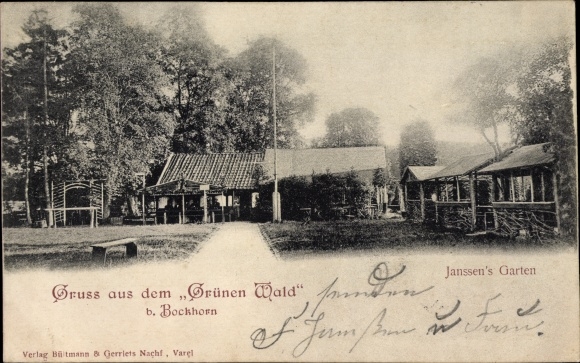 Gruss aus dem „Grünen Wald“
b. Bockhorn
Janssen's Garten
senden
u Frau
Verlag Bültmann & Gerriets Nachf., Varel